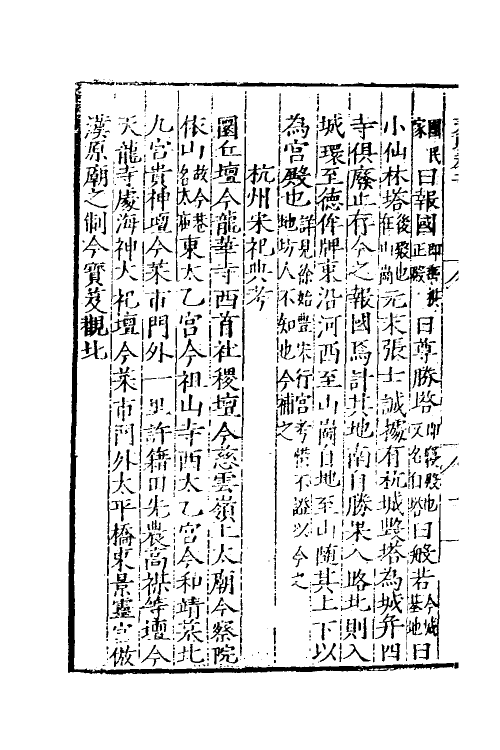 國民家曰報國即舊祺正殿曰尊勝塔即寢殿也又名白塔曰般若今城基地曰
小仙林塔後殿也在山崗元末張士誠據有杭城毀塔為城并四
寺俱廢止存今之報國焉計其地南自勝果入路北則入
城環至德侔牌東沿河西至山崗自地至山隨其上下以
為宮殿也詳見徐始豐宋行宮考惜不證以今之地坊人不知也今補之
杭州宋祀典考
圜丘壇今龍華寺西首社稷壇今慈雲嶺上太廟今察院
依山故今巷名太廟東太乙宮今祖山寺西太乙宮今和靖墓北
九宮貴神壇今菜市門外一里許籍田先農高禖等壇今
天龍寺處海神大祀壇今菜市門外太平橋東景靈宮倣
漢原廟之制今寶芟觀北